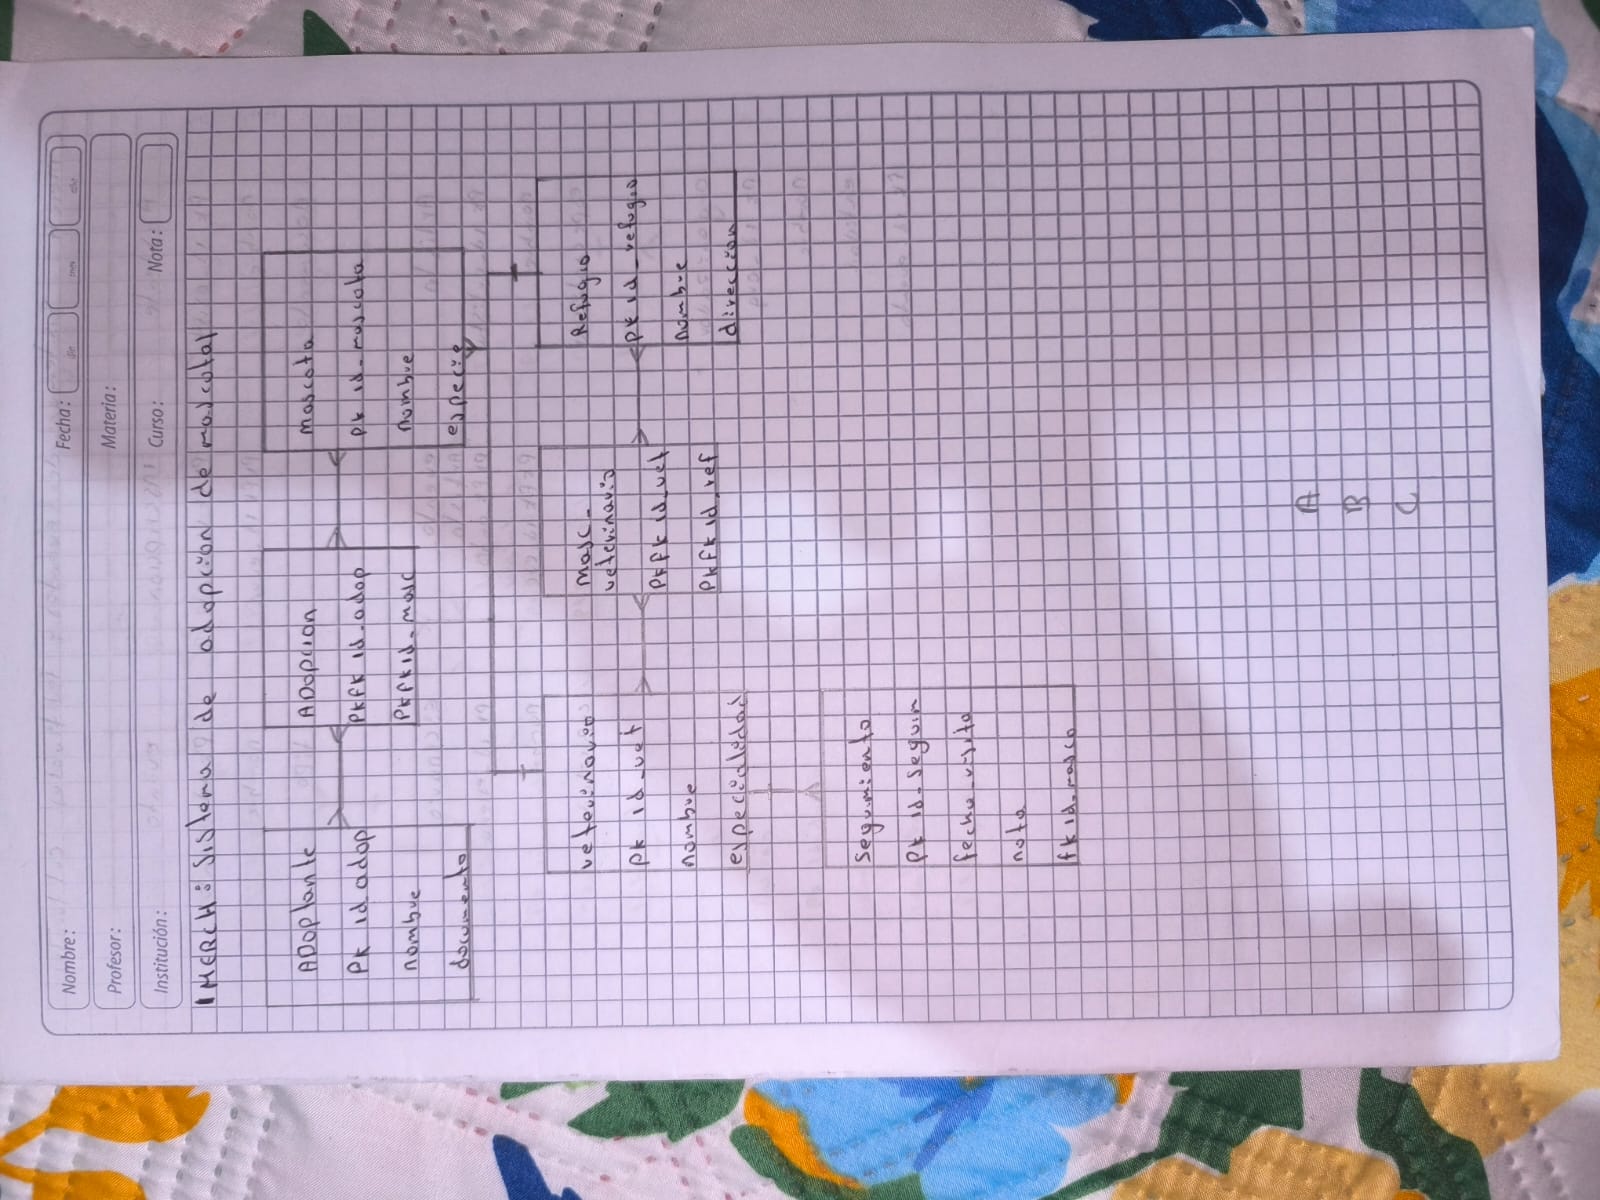 Nombre:
Fecha:
Profesor:
Materia:
Institución:
Curso:
Nota:
MERCH: Sistema de adopcion de mascotas
ADoptante
PK id_adop
nombre
documento
ADopcion
PKfK id_adop
PKfKid_masc
mascota
PK id_mascota
nombre
especie
veterinario
PK id_vet
nombre
especialidad
masc-
veterinario
PKfK id_vet
PKfKid_ref
Refugio
PK id_refugio
nombre
direccion
Seguimiento
PK id_seguim
fecha_visita
nota
fKid_masco
A
B
C